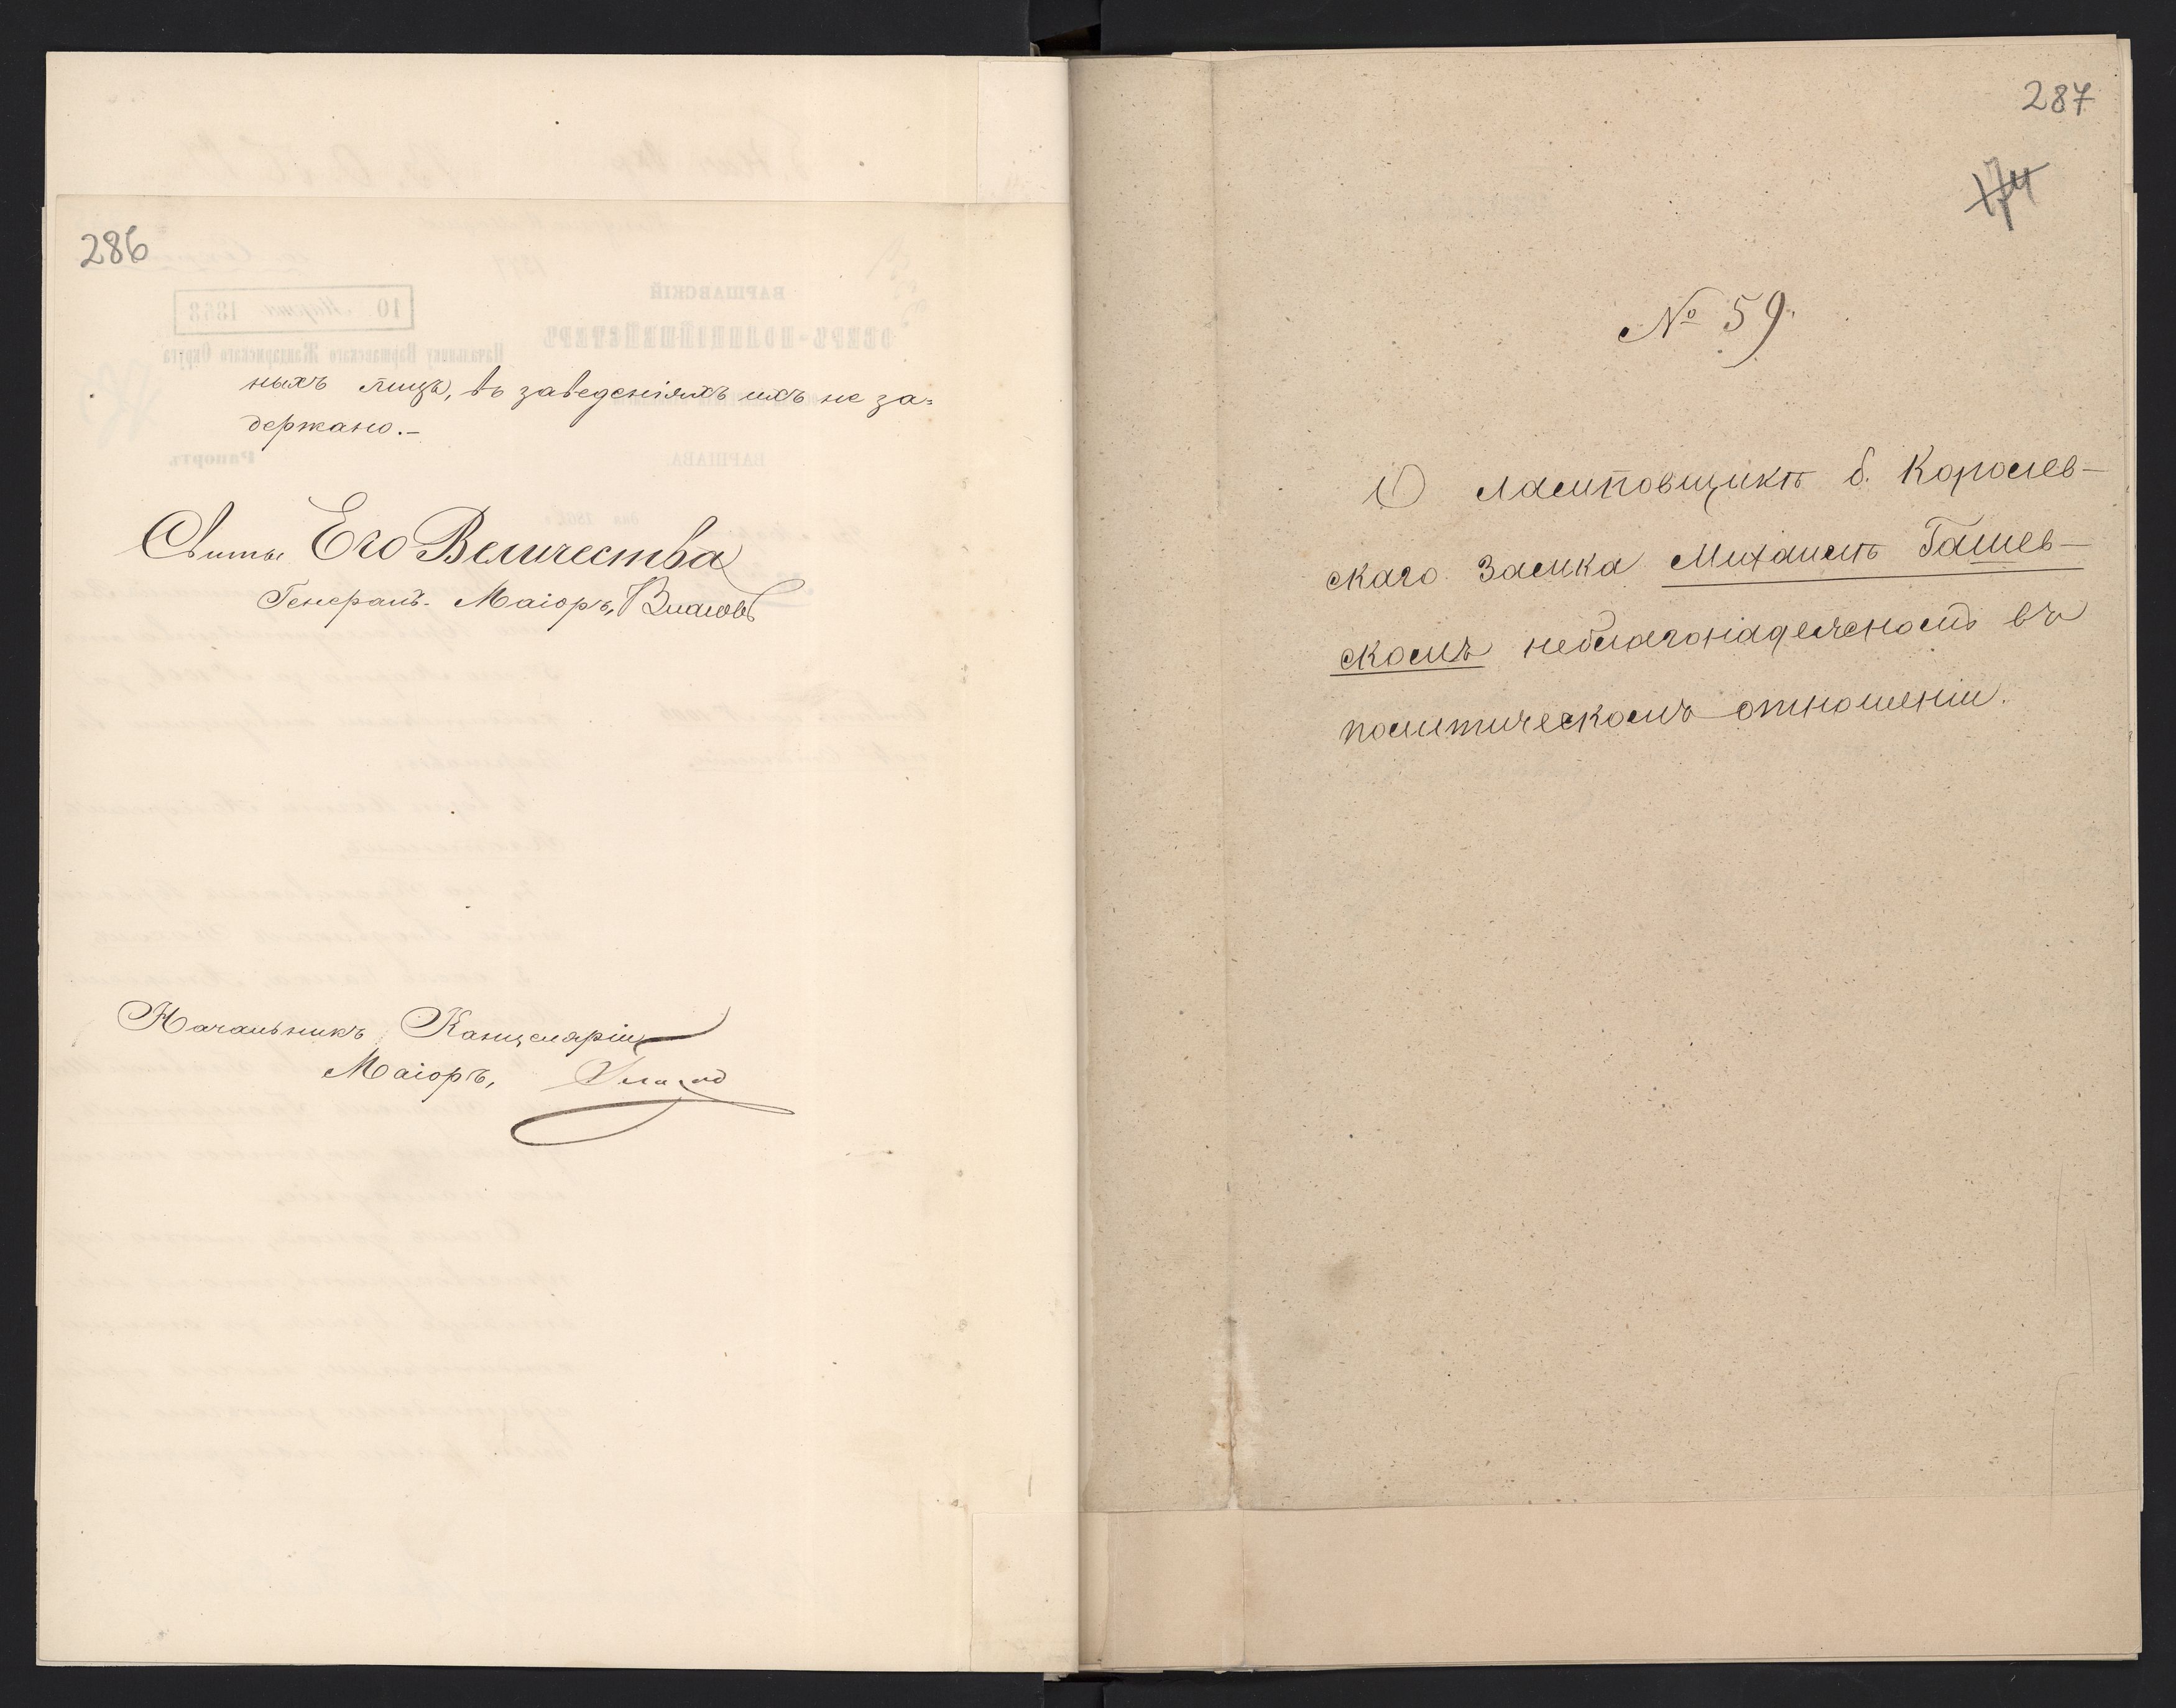 286
ныхъ лицъ, въ заведеніяхъ ихъ не за=
держано.–
Свиты Его Величества
Генералъ-Маіоръ, Власовъ
Начальникъ Канцеляріи
Маіоръ,
287
174
№ 59.
1) Ламповщикъ б. Королев-
скаго Замка Михаилъ Гашев-
скомъ неблагонадежномъ въ
политическомъ отношеніи.